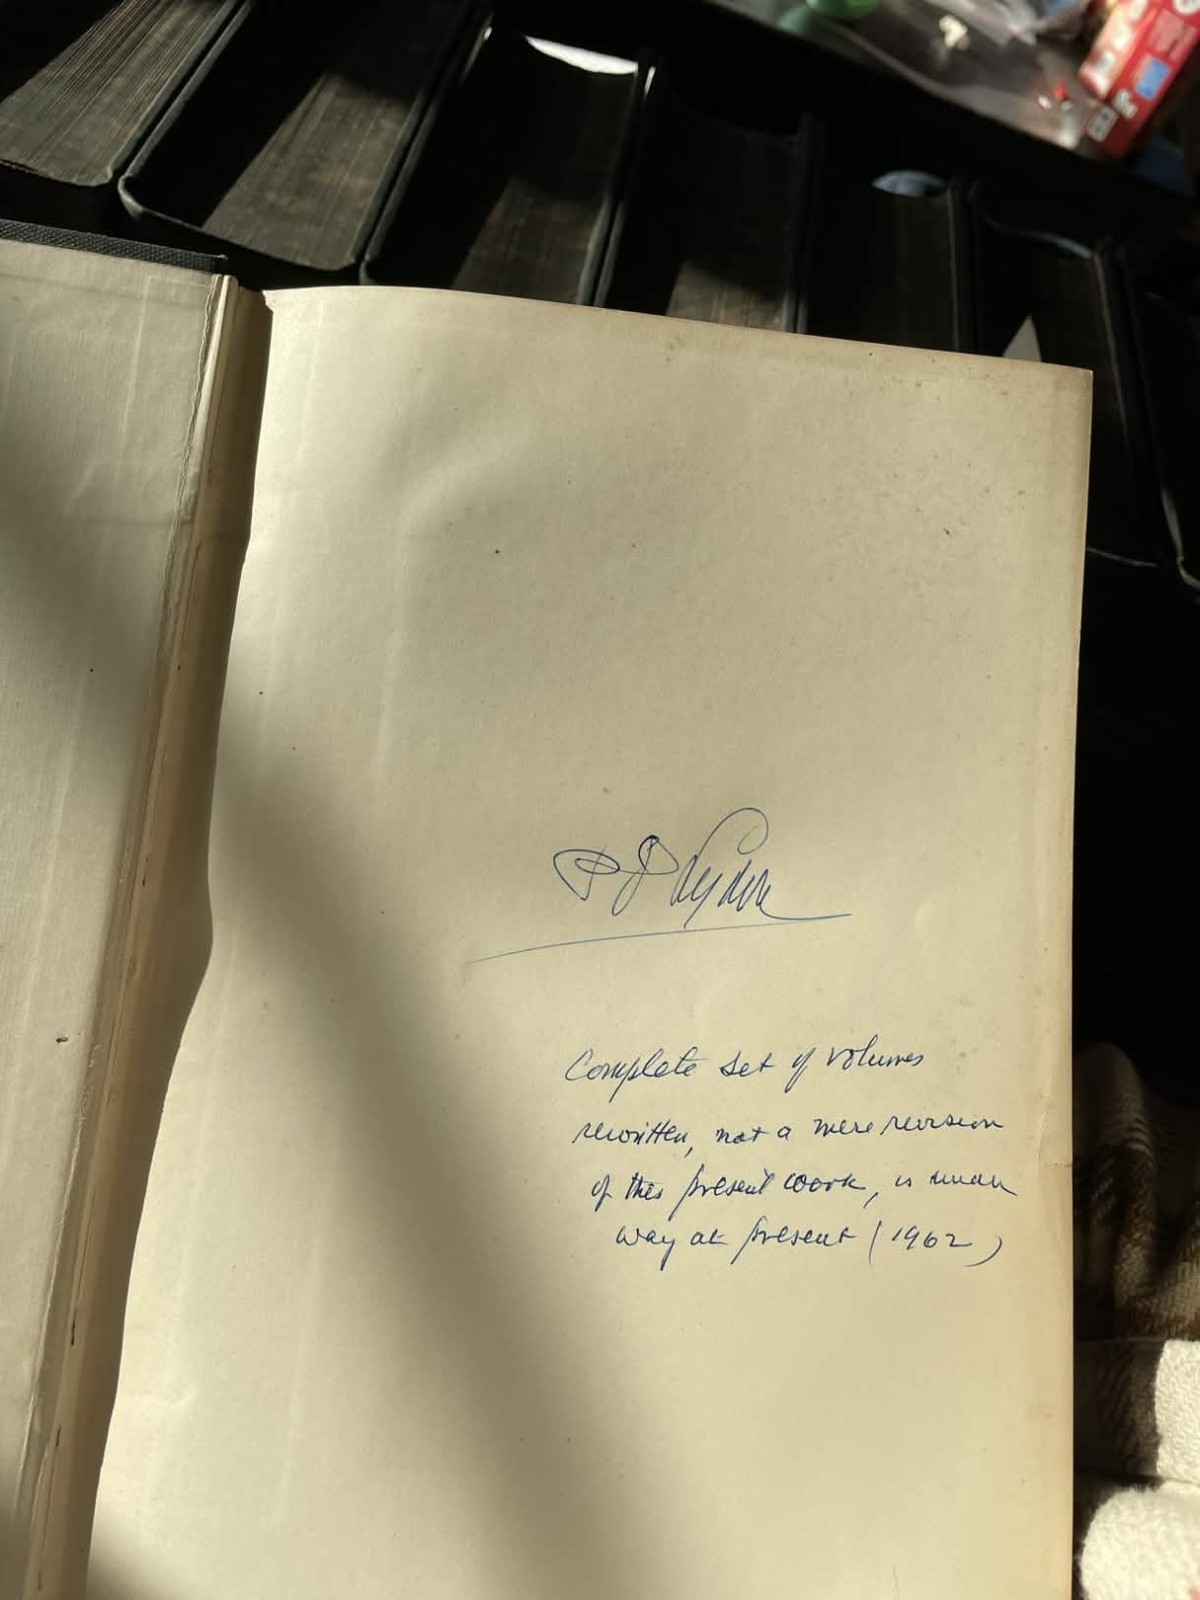 Complete set of volumes
rewritten, not a mere revision
of this present work, is under
way at present (1962)